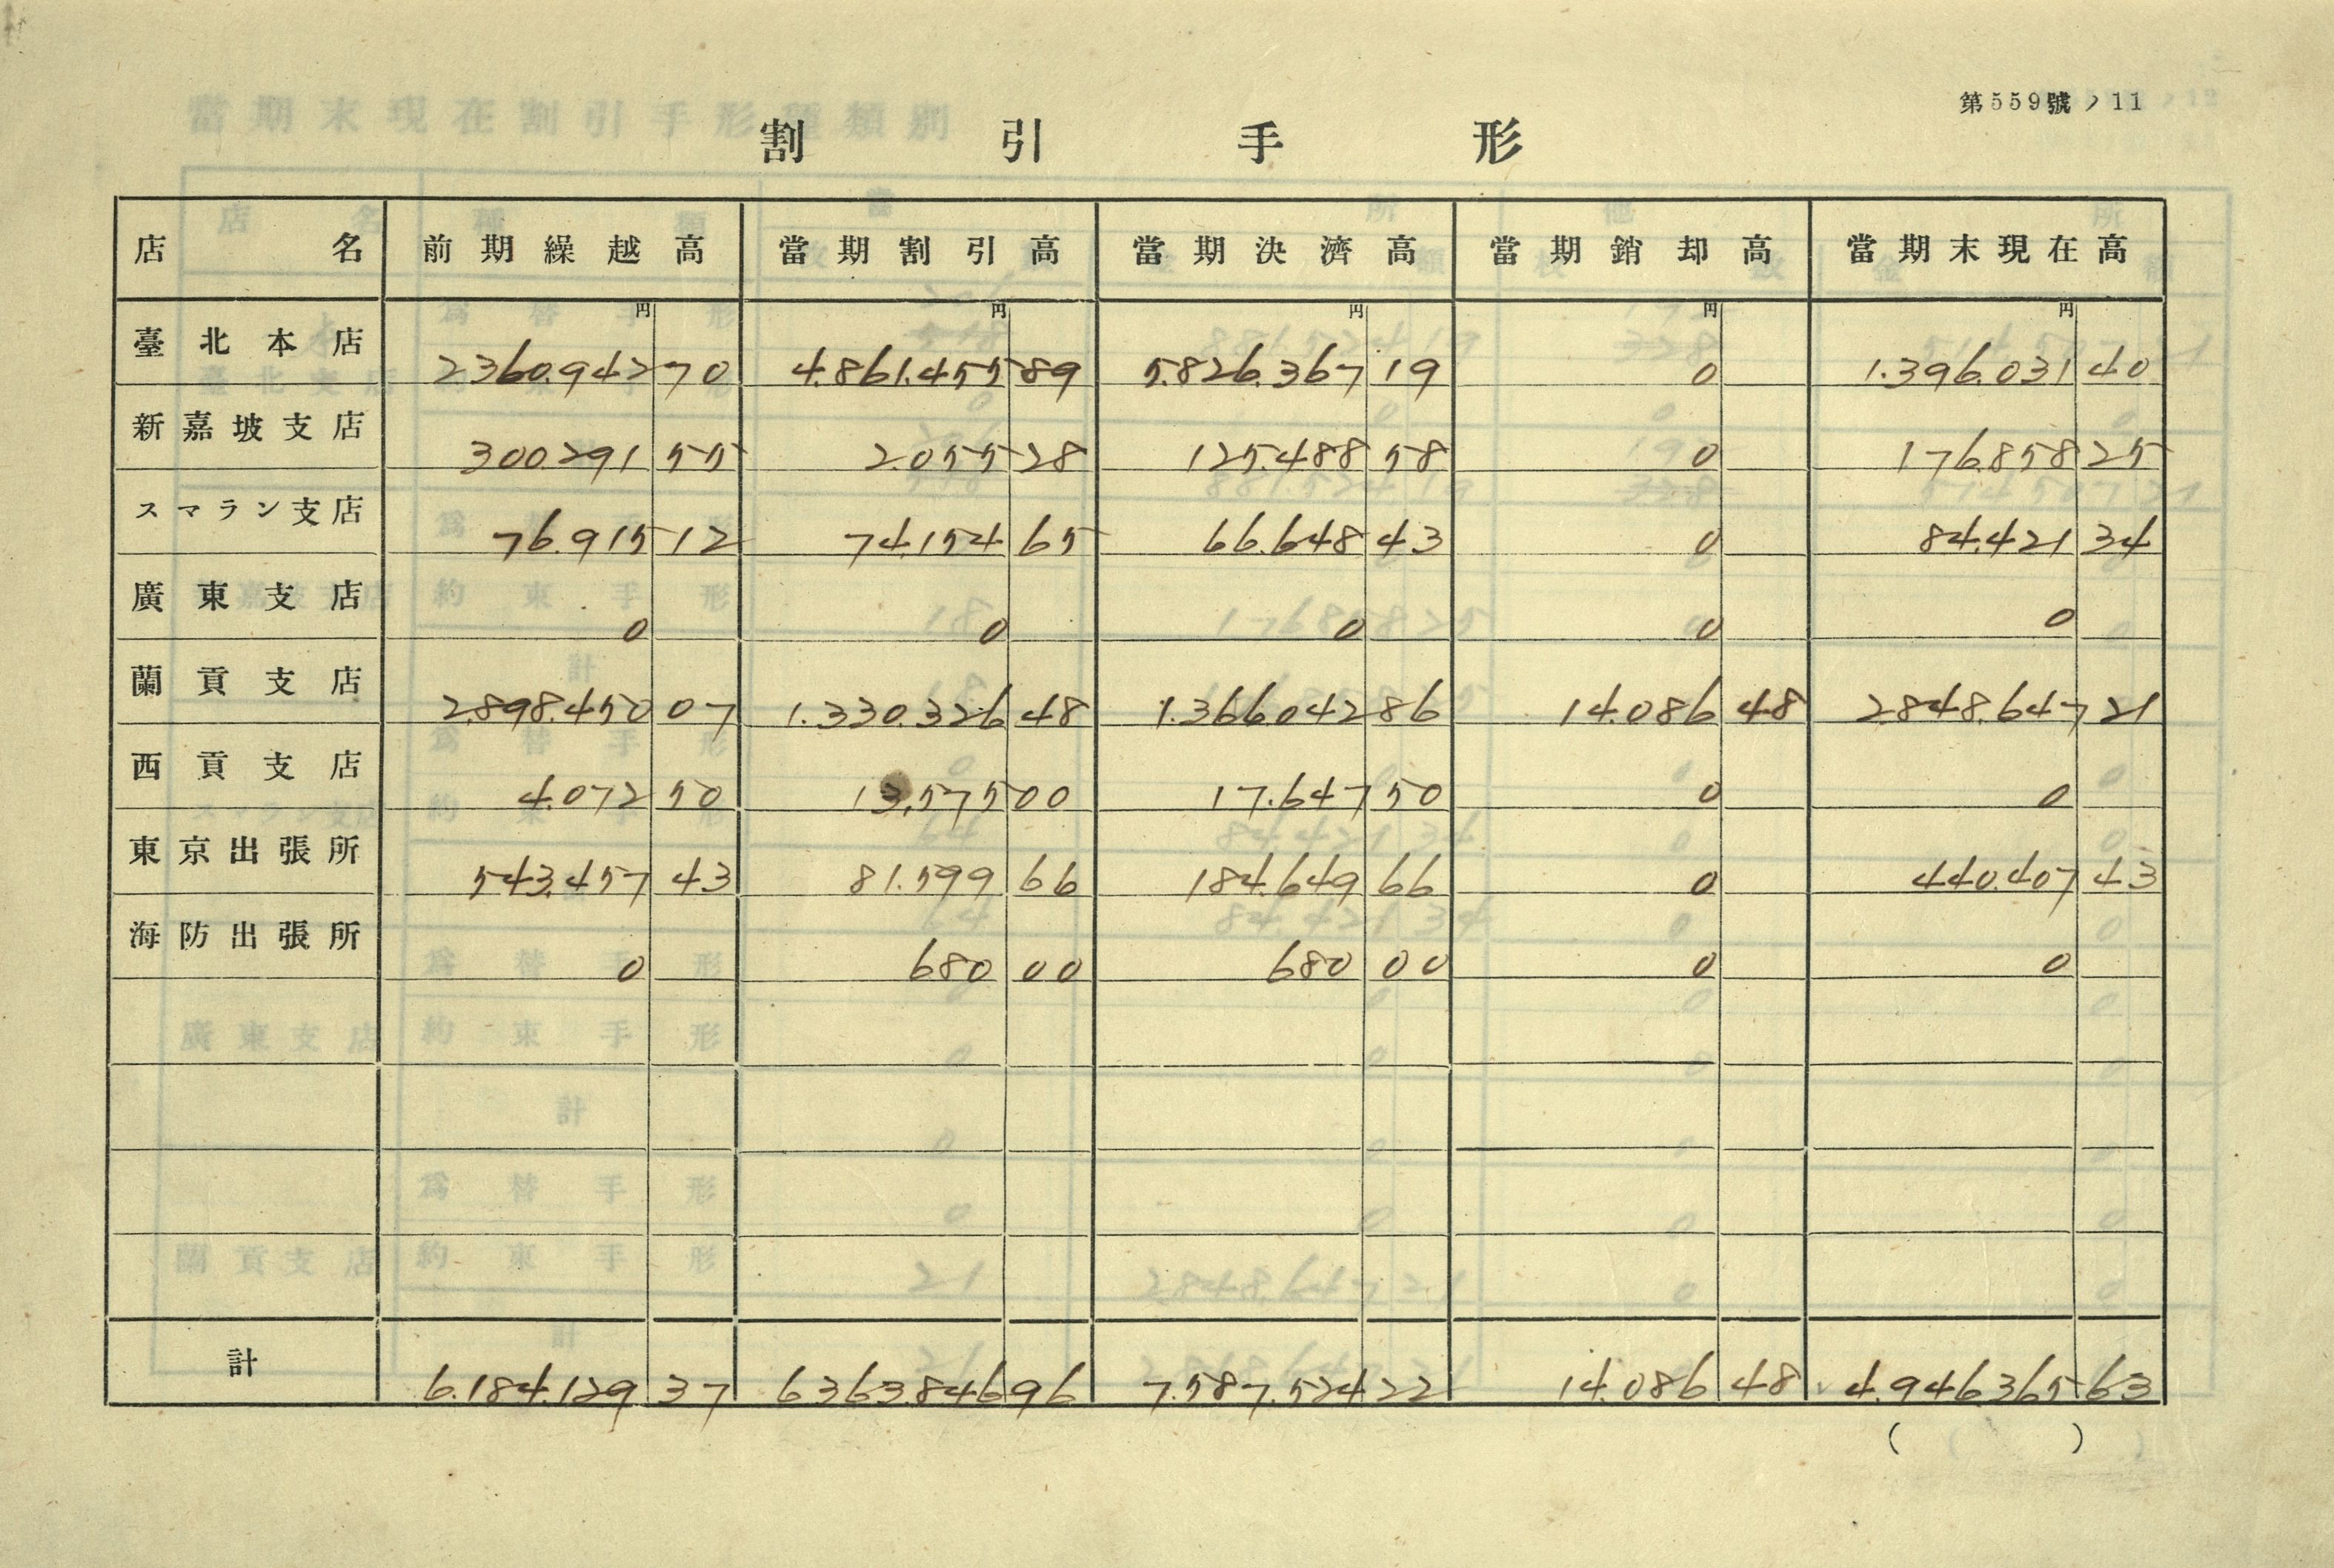 第559號ノ11
割引手形
店名 前期繰越高 當期割引高 當期決濟高 當期銷却高 當期末現在高
円 円 円 円 円
臺北本店 2360.942 70 4.861.455 89 5.826.367 19 0 1.396.031 40
新嘉坡支店 300.291 55 2.055 28 125.488 58 0 176.858 25
スマラン支店 76.915 12 74.154 65 66.648 43 0 84.421 34
廣東支店 0 0 0 0 0
蘭貢支店 2.898.450 07 1.330.326 48 1.366.042 86 14.086 48 2.848.647 21
西貢支店 4.072 50 13.575 00 17.647 50 0 0
東京出張所 543.457 43 81.599 66 184.649 66 0 440.407 43
海防出張所 0 680 00 680 00 0 0
計 6.184.129 37 6363.846 96 7.587.524 22 14.086 48 4.946.365 63
( )